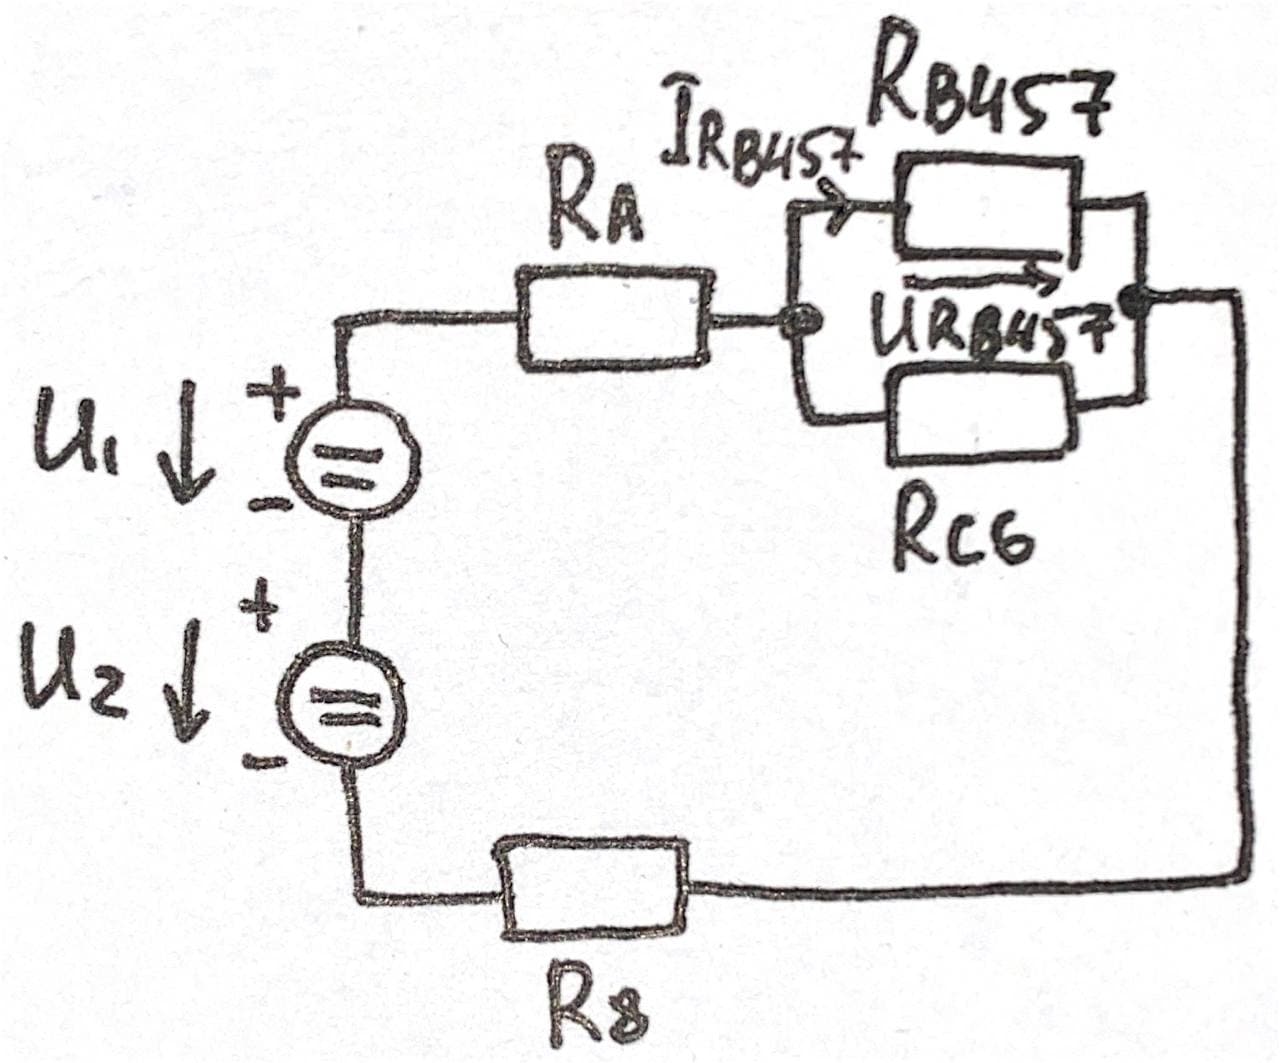 RB457
IRB457
RA
URB457
+
U1
-
RC6
+
U2
-
R8